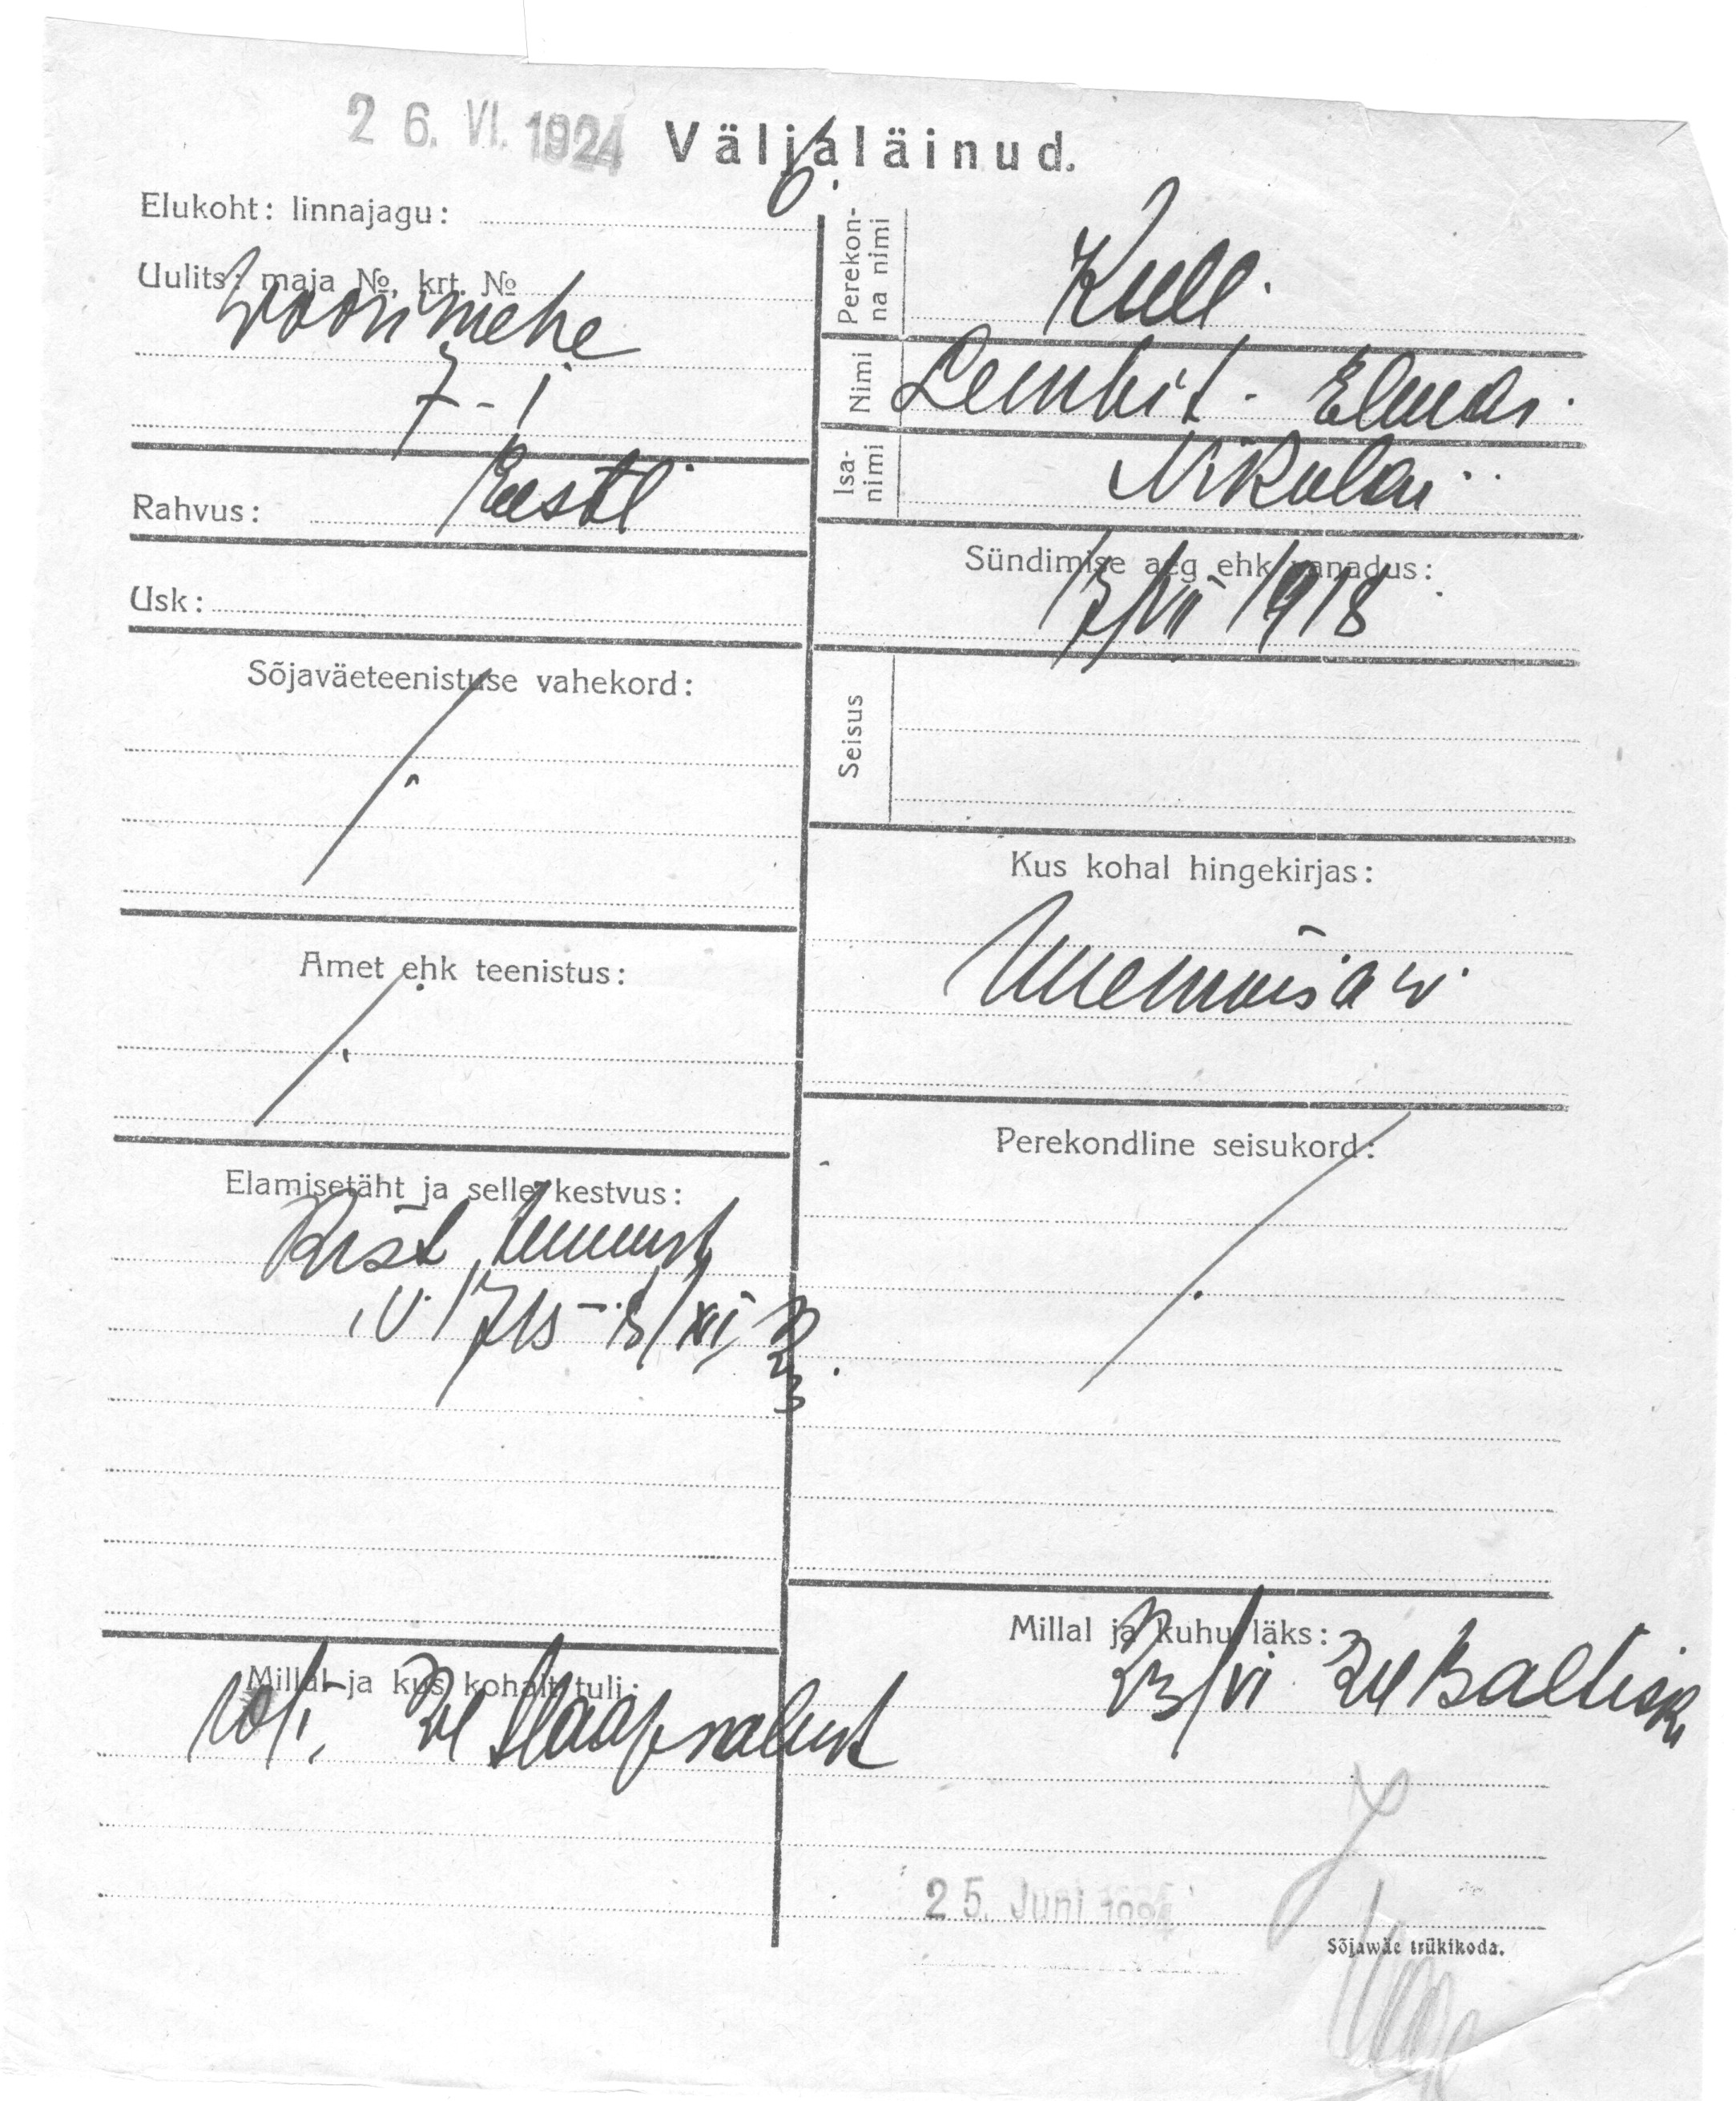 26. VI. 1924
Väljaläinud.
Elukoht: linnajagu:
Uulits: maja №, krt. №
Woorimehe
7-1
Rahvus: Eesti
Usk:
Sõjaväeteenistuse vahekord:
Amet ehk teenistus:
Elamisetäht ja selle kestvus:
Rist
Millal ja kus kohalt tuli:
24 Haapsalust
Perekon-
na nimi
Kull.
Nimi
Lembit - Elmar.
Isa-
nimi
Nikolai
Sündimise aeg ehk vanadus:
17/VII 1918
Seisus
Kus kohal hingekirjas:
Uuemõisa w.
Perekondline seisukord:
Millal ja kuhu läks:
23/VI 24 Baltiski
25. Juni 1924
Sõjawäe trükikoda.